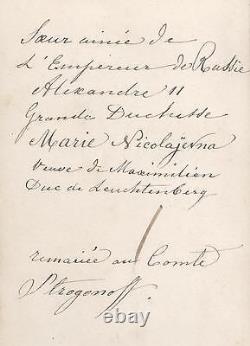 Sœur ainée de
L'Empereur de Russie
Alexandre 11
Grande Duchesse
Marie Nicolajevna
Veuve de Maximilien
Duc de Leuchtenberg
remariée au Comte
Strogonoff.
ebay